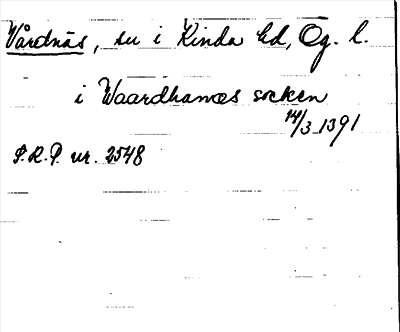 Vårdnäs, sn i Kinda hd, Ög. l.
i Waardhanæs socken
14/3 1391
S.R.P. nr. 2548